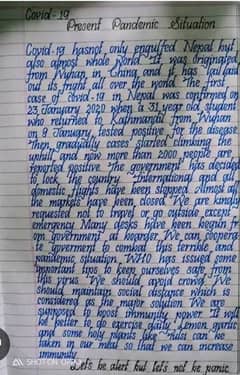 Covid-19
Present Pandemic Situation
Covid-19 hasnot only engulfed Nepal but
also almost whole world. It was originated
from Wuhan, in China and it has laid
out its fright all over the world. The first
case of covid-19 in Nepal was confirmed on
23 January 2020 when a 31 year old student
who returned to Kathmandu from Wuhan
on 9 January, tested positive for the disease.
Then gradually cases started climbing
uphill and now more than 2000 people are
reported positive. The government has decided
to lock the country. International and all
domestic flights have been stopped. Almost all
the markets have been closed. We are kindly
requested not to travel or go outside except
emergency. Many desks have been begun
government at We can
goverment to combat this terrible and
pandemic situation. WHO has issued some
important tips to keep ourselves safe from
this virus. We should avoid crowd. We
should maintain social distance which is
considered as the major solution. We are
supposed to boost immunity power. It will
be better to do exercise daily. Lemon, garlic
and some holy plants like can be
taken in our meal so that we can increase
immunity.
Let's be alert but let's not be panic
SHOT ON